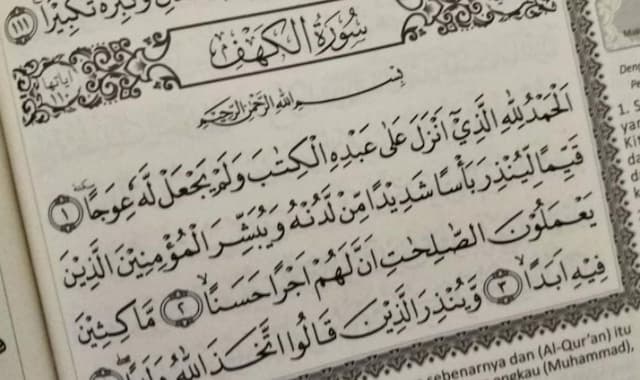 وَكَبِّرْهُ تَكْبِيْرًا ١١١
سُورَةُ الْكَهْفِ
اٰيَاتُهَا
١١٠
بِسْمِ اللّٰهِ الرَّحْمٰنِ الرَّحِيْمِ
اَلْحَمْدُ لِلّٰهِ الَّذِيْٓ اَنْزَلَ عَلٰى عَبْدِهِ الْكِتٰبَ وَلَمْ يَجْعَلْ لَّهٗ عِوَجًا ۜ ١
قَيِّمًا لِّيُنْذِرَ بَأْسًا شَدِيْدًا مِّنْ لَّدُنْهُ وَيُبَشِّرَ الْمُؤْمِنِيْنَ الَّذِيْنَ
يَعْمَلُوْنَ الصّٰلِحٰتِ اَنَّ لَهُمْ اَجْرًا حَسَنًاۙ ٢ مَّاكِثِيْنَ
فِيْهِ اَبَدًاۙ ٣ وَّيُنْذِرَ الَّذِيْنَ قَالُوا اتَّخَذَ اللّٰهُ وَلَدًا
Deng
1.
yan
Kit
da
sebenarnya dan (Al-Qur'an) itu
engkau (Muhammad),